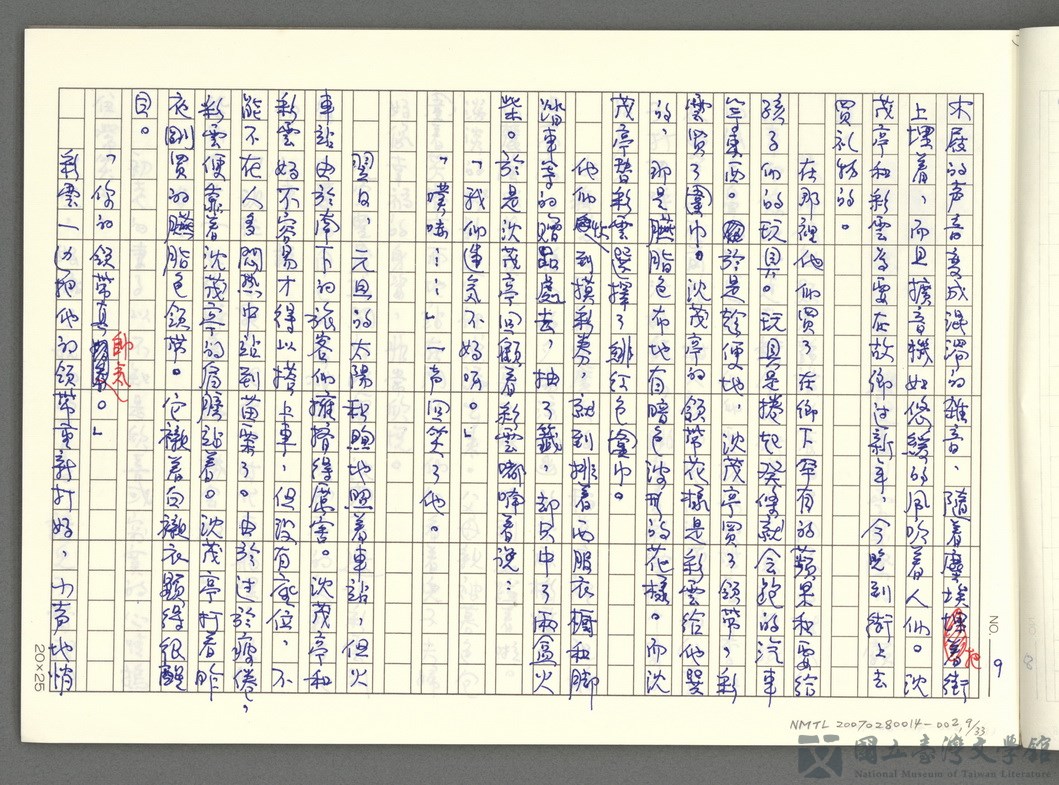 木屐的声音変成混濁的雜音、隨着塵埃把街
上埋着，而且擴音機如悠緩的風吹着人们。沈
茂亭和彩雲為要在故鄉过新年，今晚到街上去
買礼物的。
在那裡他们買了在鄉下罕有的蘋果和要給
孩子们的玩具。玩具是捲起発條就会跑的汽車
等東西。於是趁便地，沈茂亭買了領帶，彩
雲買了圍巾。沈茂亭的領帶花樣是彩雲給他選
的，那是臙脂色布地有暗色波形的花樣。而沈
茂亭替彩雲選擇了緋紅色圍巾。
他们也到摸彩券，就到排着西服衣櫥和脚
踏車等的贈品處去，抽了籤，却只中了兩盒火
柴。於是沈茂亭回顧着彩雲嘟喃着說：
「我们運氣不好哪。」
「噗嗤……」一声回笑了他。
翌日，元旦的太陽和煦地照着車站，但火
車站由於南下的旅客们擁擠得厲害。沈茂亭和
彩雲好不容易才得以搭上車，但没有座位，不
能不在人多悶热中站到苗栗了。由於过於疲倦，
彩雲便靠着沈茂亭的肩膀站着。沈茂亭打着昨
夜剛買的臙脂色領帶。它襯着白襯衣顕得很醒
目。
「你的領帶真帥氣。」
彩雲一边把他的領帶重新打好，小声地悄
NO. 9
20×25
NMTL 20070280014-002, 9/33
國立臺灣文學館
National Museum of Taiwan Literature